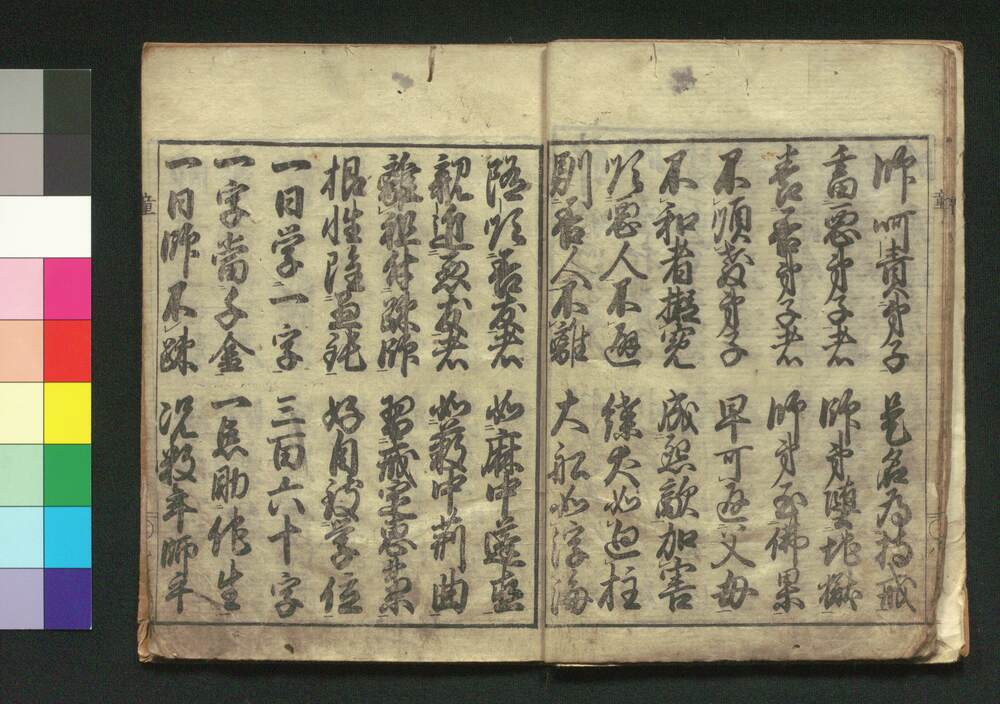 師呵責弟子 是名為持戒
畜悪弟子者 師弟堕地獄
養善弟子者 師弟至佛果
不順教弟子 早可返父母
不和者擬冤 成怨敵加害
順悪人不避 緤犬如廻柱
馴善人不離 大船如浮海
随順善友者 如麻中蓬直
親近悪友者 如藪中荊曲
離祖付疎師 習戒定恵業
根性雖愚鈍 好自致学位
一日学一字 三百六十字
一字當千金 一点助他生
一日師不疎 况数年師乎
童
童